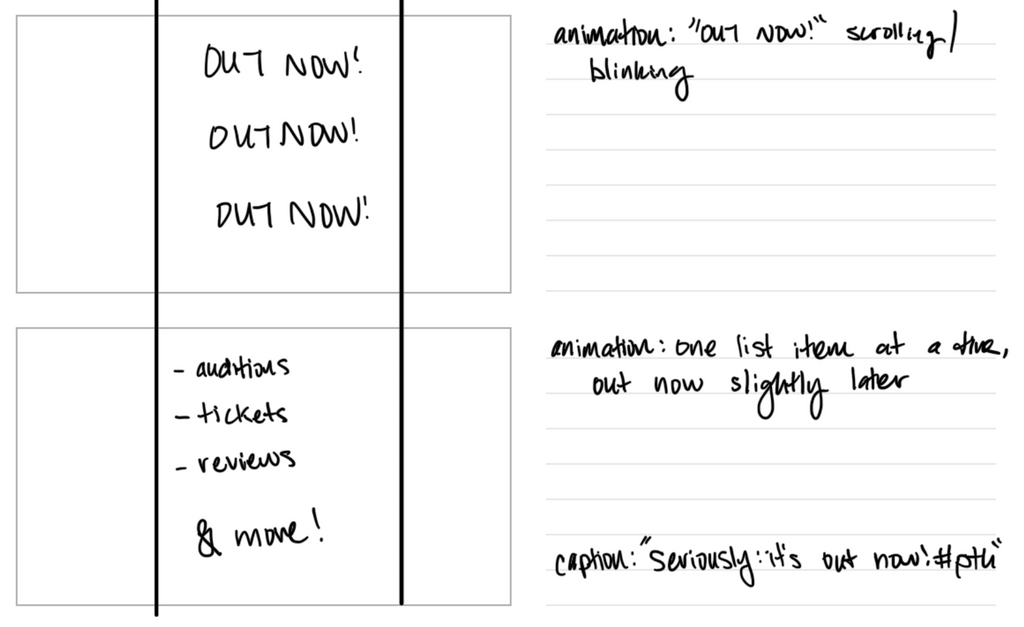 OUT NOW!
OUT NOW!
OUT NOW!
animation: "OUT NOW!" scrolling/
blinking
- auditions
- tickets
- reviews
& more!
animation: one list item at a time,
out now slightly later
caption: "seriously: it's out now! #pth"